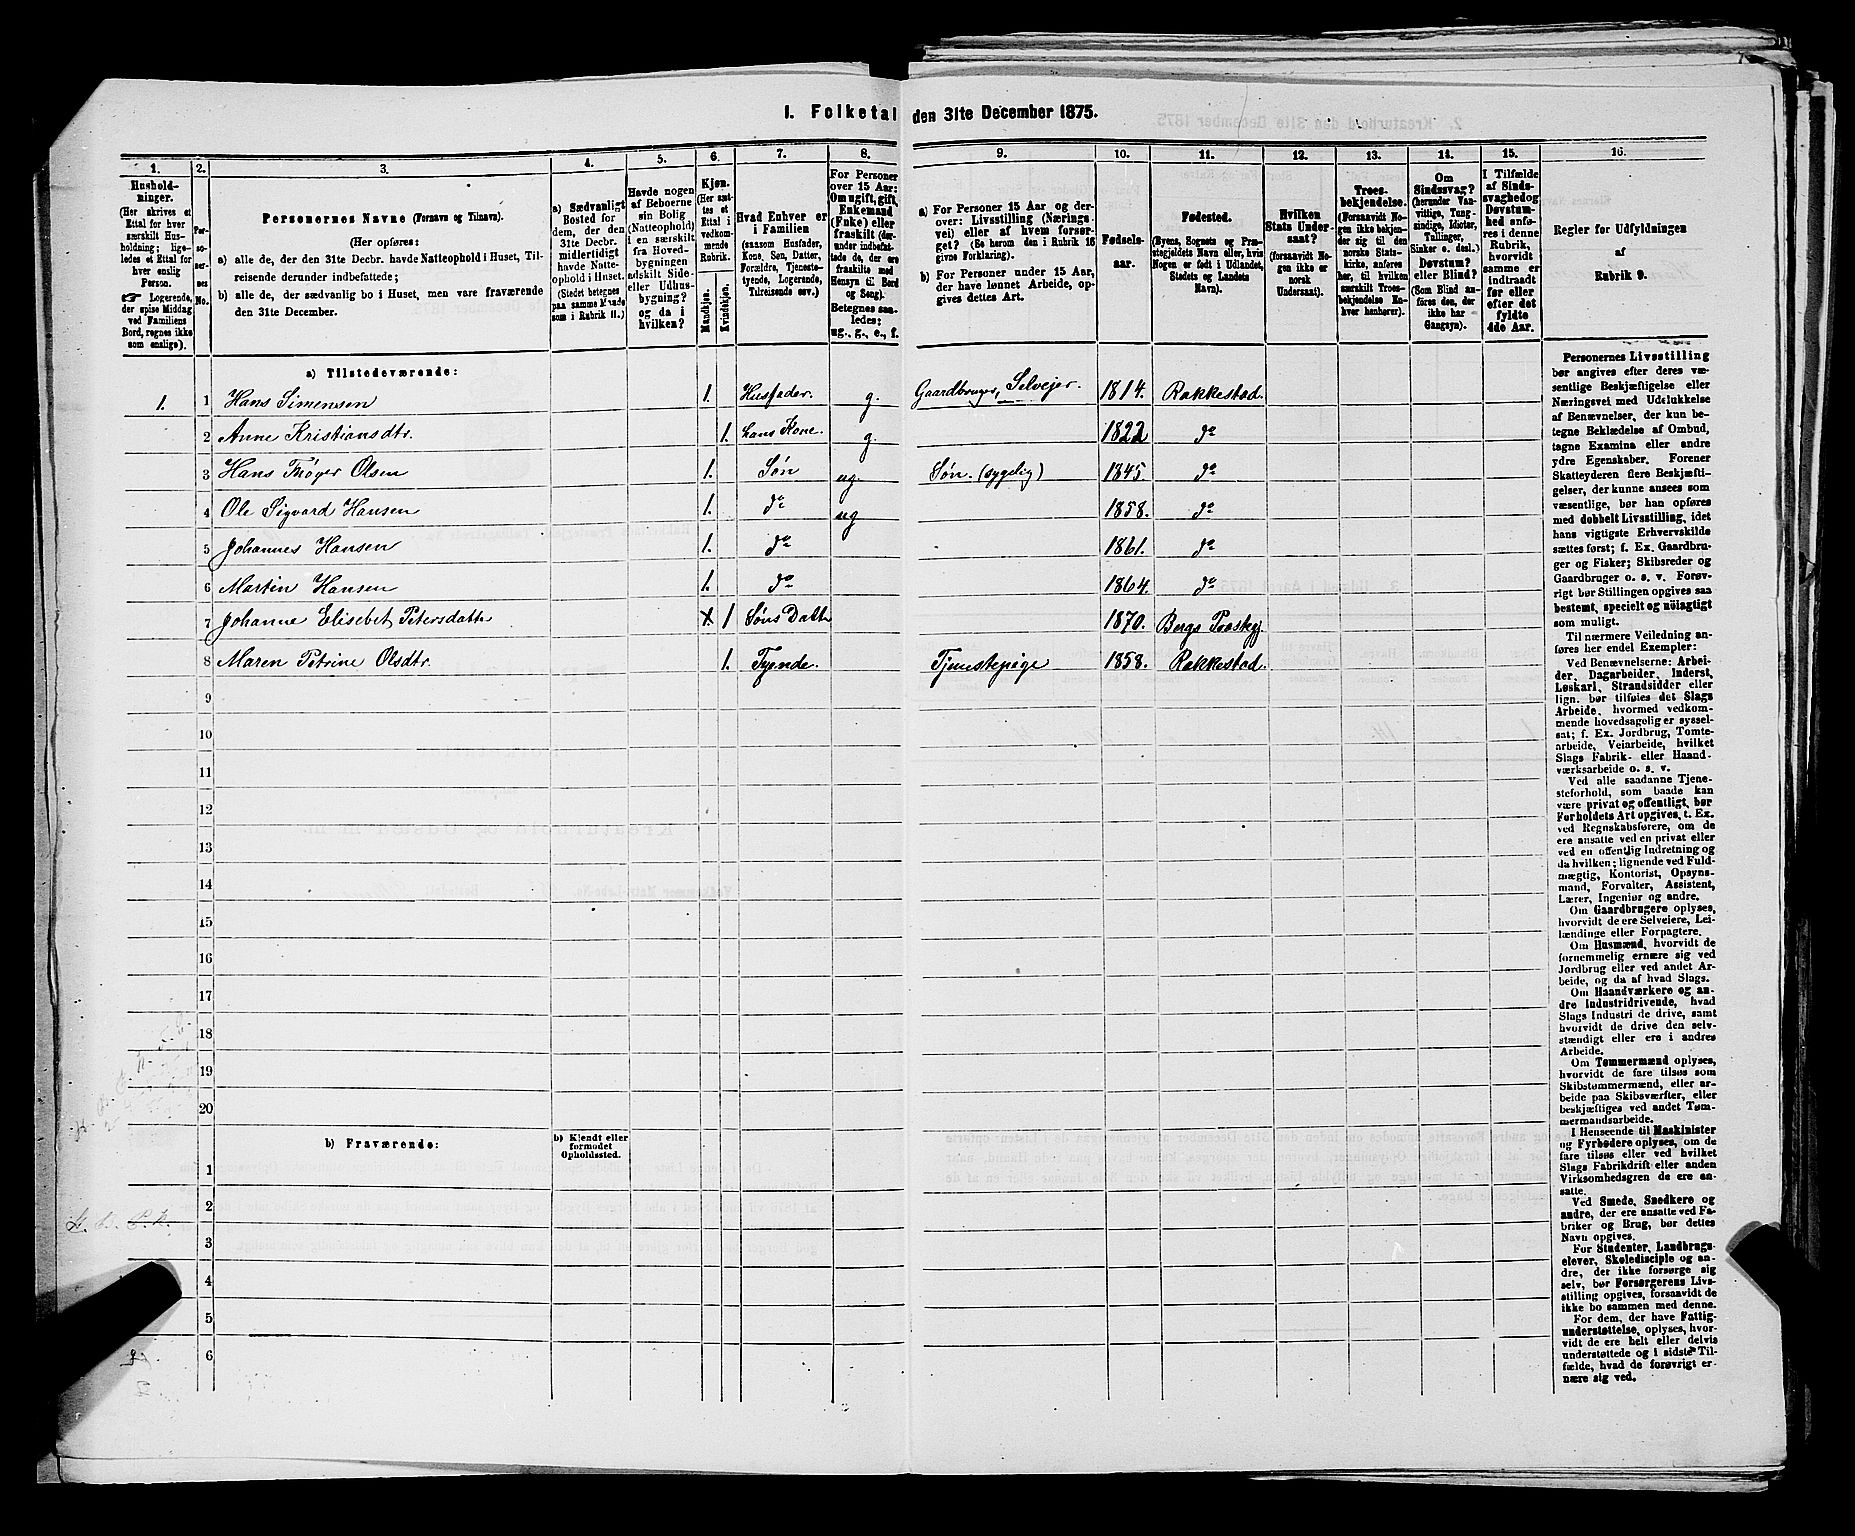 1. Folketal den 31te December 1875.
1. 2. 3. 4. 5. 6. 7. 8. 9. 10. 11. 12. 13. 14. 15. 16.
Hushold-
ninger.
(Her skrives et
Ettal for hver
særskilt Hus-
holdning; lige-
ledes et Ettal for
hver enslig
Person.
☞ Logerende,
der spise Middag
ved Familiens
Bord, regnes ikke
som enslige).
Per-
so-
ner-
nes
No.
Personernes Navne (Fornavn og Tilnavn).
(Her opføres:
a) alle de, der den 31te Decbr. havde Natteophold i Huset, Til-
reisende derunder indbefattede;
b) alle de, der sædvanlig bo i Huset, men vare fraværende
den 31te December.
a) Sædvanligt
Bosted for
dem, der den
31te Decbr.
midlertidigt
havde Natte-
ophold i Huset.
(Stedet betegnes
paa samme Maade
som i Rubrik 11.)
Havde nogen
af Beboerne
sin Bolig
(Natteophold)
i en særskilt
fra Hoved-
bygningen
adskilt Side-
eller Udhus-
bygning?
og da i
hvilken?
Kjøn.
(Her sæt-
tes et
Ettal i
vedkom-
mende
Rubrik.
Mandkjøn.
Kvindekjøn.
Hvad Enhver er
i Familien
(saasom Husfader,
Kone, Søn, Datter,
Forældre, Tjeneste-
tyende, Logerende,
Tilreisende osv.)
For Personer
over 15 Aar:
Om ugift, gift,
Enkemand
(Enke) eller
fraskilt (der-
under indbefat-
tede de, der ere
fraskilte med
Hensyn til Bord
og Seng).
Betegnes saa-
ledes:
ug., g., e., f.
a) For Personer 15 Aar og der-
over: Livsstilling (Nærings-
vei) eller af hvem forsør-
get? (Se herom den i Rubrik 16
givne Forklaring).
b) For Personer under 15 Aar,
der have lønnet Arbeide, op-
gives dettes Art.
Fødsels-
aar.
Fødested.
(Byens, Sognets og Præ-
stegjeldets Navn eller, hvis
Nogen er født i Udlandet,
Stedets og Landets
Navn).
Hvilken
Stats Under-
saat?
(forsaavidt No-
gen ikke er
norsk
Undersaat).
Troes-
bekjendelse.
(Forsaavidt No-
gen ikke bekjen-
der sig til den
norske Stats-
kirke, anføres
her, til hvilken
særskilt Troes-
bekjendelse En-
hver henhører).
Om
Sindssvag?
(herunder Van-
vittige, Tung-
sindige, Idioter,
Tullinger,
Sinker o. desl.)
Døvstum?
eller Blind?
(Som Blind an-
føres den, der
ikke har
Gangsyn).
I Tilfælde
af Sinds-
svaghed og
Døvstum-
hed anfø-
res i denne
Rubrik,
hvorvidt
samme er
indtraadt
før eller
efter det
fyldte
4de Aar.
Regler for Udfyldningen
af
Rubrik 9.
a) Tilstedeværende:
1. 1 Hans Simensen 1. Husfader. g. Gaardbruger, Selvejer. 1814. Rakkestad.
2 Anne Kristiansdtr. 1. hans Kone. g. 1822 do
3 Hans Thøger Olsen 1. Søn ug. Søn. (sygelig) 1845. do
4 Ole Sigvard Hansen 1. do ug 1858. do
5 Johannes Hansen 1. do 1861. do
6 Martin Hansen 1. do 1864. do
7 Johanne Elisebet Petersdattr 1 Søns Dattr 1870. Bergs Præstegj.
8 Maren Petrine Olsdtr. 1. Tyende. Tjenestepige 1858. Rakkestad.
9
10
11
12
13
14
15
16
17
18
19
20
b) Fraværende:
b) Kjendt eller
formodet
Opholdssted.
1
2
3
4
5
6
Personernes Livsstilling
bør angives efter deres væ-
sentlige Beskjæftigelse eller
Næringsvei med Udelukkelse
af Benævnelser, der kun be-
tegne Beklædelse af Ombud,
tagne Examina eller andre
ydre Egenskaber. Forener
Skatteyderen flere Beskjæfti-
gelser, der kunne ansees som
væsentlige, bør han opføres
med dobbelt Livsstilling, idet
hans vigtigste Erhvervskilde
sættes først; f. Ex. Gaardbru-
ger og Fisker; Skibsreder og
Gaardbruger o. s. v. Forøv-
rigt bør Stillingen opgives saa
bestemt, specielt og nøiagtigt
som muligt.
Til nærmere Veiledning an-
føres her endel Exempler:
Ved Benævnelserne: Arbei-
der, Dagarbeider, Inderst,
Løskarl, Strandsidder eller
lign. bør tilføies det Slags
Arbeide, hvormed vedkom-
mende hovedsagelig er syssel-
sat; f. Ex. Jordbrug, Tomte-
arbeide, Veiarbeide, hvilket
Slags Fabrik- eller Haand-
værksarbeide o. s. v.
Ved alle saadanne Tjene-
steforhold, som baade kan
være privat og offentligt, bør
Forholdets Art opgives, t. Ex.
ved Regnskabsførere, om de
ere ansatte ved en privat eller
ved en offentlig Indretning og
da hvilken; lignende ved Fuld-
mægtig, Kontorist, Opsyns-
mand, Forvalter, Assistent,
Lærer, Ingeniør og andre.
Om Gaardbrugere oplyses,
hvorvidt de ere Selveiere, Lei-
lændinge eller Forpagtere.
Om Husmænd, hvorvidt de
fornemmelig ernære sig ved
Jordbrug eller ved andet Ar-
beide, og da af hvad Slags.
Om Haandværkere og an-
dre Industridrivende, hvad
Slags Industri de drive, samt
hvorvidt de drive den selv-
stændigt eller ere i andres
Arbeide.
Om Tømmermænd oplyses,
hvorvidt de fare tilsøs som
Skibstømmermænd, eller ar-
beide paa Skibsværfter, eller
beskjæftiges ved andet Tøm-
mermandsarbeide.
I Henseende til Maskinister
og Fyrbødere oplyses, om de
fare tilsøs eller ved hvilket
Slags Fabrikdrift eller anden
Virksomhedsgren de ere an-
satte.
Ved Smede, Snedkere og
andre, der ere ansatte ved Fa-
briker og Brug, bør dettes
Navn opgives.
For Studenter, Landbrugs-
elever, Skoledisciple og an-
dre, der ikke forsørge sig
selv, bør Forsørgerens Livs-
stilling opgives, forsaavidt de
ikke bo sammen med denne.
For dem, der have Fattig-
understøttelse, oplyses, hvor-
vidt de ere helt eller delvis
understøttede og i sidste Til-
fælde, hvad de forøvrigt er-
nære sig ved.